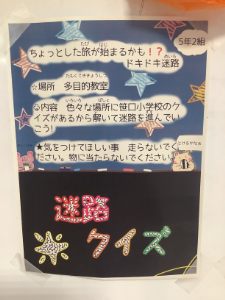 ちょっとした旅が始まるかも！？
5年2組
ドキドキ迷路
☆場所　多目的教室
◎内容　色々な場所に笹口小学校のク
イズがあるから解いて迷路を進んでい
こう!
★気をつけてほしい事　走らないでく
ださい。物に当たらないでください
迷路
クイズ